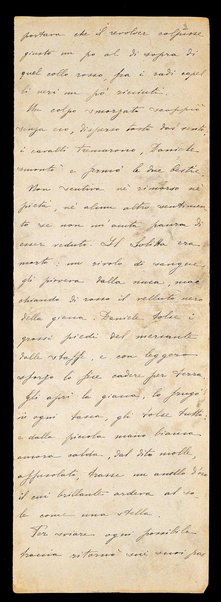 portava che il revolver colpisse
giusto un po al di sopra di
quel collo rosso, fra i radi capel
li neri un po' ricciuti.
Un colpo smorzato scoppiò
senza eco, disperso tosto dai venti,
i cavalli tremarono, Daniele
smontò e fermò le due bestie.
Non sentiva nè rimorso nè
pietà nè alcun altro sentimen
to se non un'acuta paura di
esser veduto. Il Solitta era
morto: un rivolo di sangue
gli pioveva dalla nuca, mac
chiando di rosso il velluto nero
della giacca. Daniele tolse i
grossi piedi del mercante
dalle staffe, e con leggero
sforzo lo fece cader per terra.
Gli aprì la giacca, lo frugò
in ogni tasca, gli tolse tutto:
e dalla piccola mano bianca
ancora calda, dal dito molle,
affusolato, trasse un anello d'oro
il cui brillante ardeva al so
le come una stella.
Per sviare ogni possibile
traccia ritornò sui suoi pas